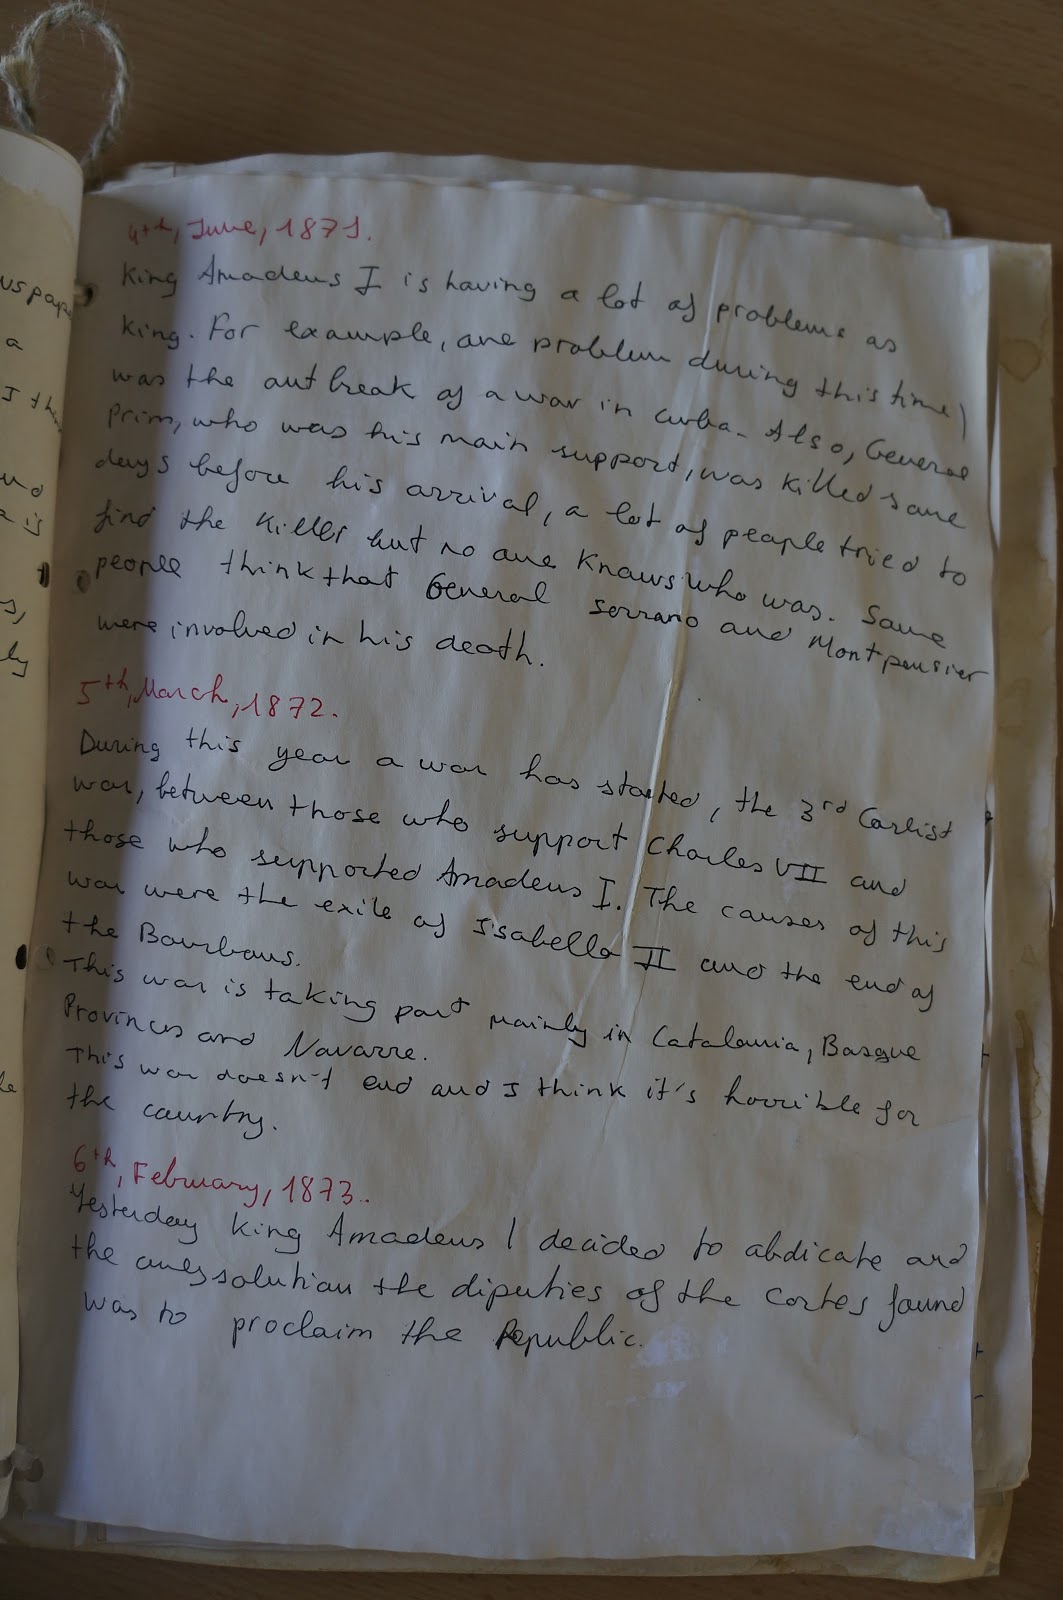 uspape
a
I then
4th, June, 1871.
King Amadeus I is having a lot of problems as
king. For example, one problem during this time)
was the outbreak of a war in Cuba. Also, General
Prim, who was his main support, was killed some
days before his arrival, a lot of people tried to
find the killer but no one knows who was. Some
people think that General Serrano and Montpensier
were involved in his death.
5th, March, 1872.
During this year a war has started, the 3rd Carlist
war, between those who support Charles VII and
those who supported Amadeus I. The causes of this
war were the exile of Isabella II and the end of
the Bourbons.
This war is taking part mainly in Catalonia, Basque
Provinces and Navarre.
This war doesn't end and I think it's horrible for
the country.
6th, February, 1873.
Yesterday King Amadeus I decided to abdicate and
the only solution the diputies of the Cortes found
was to proclaim the Republic.